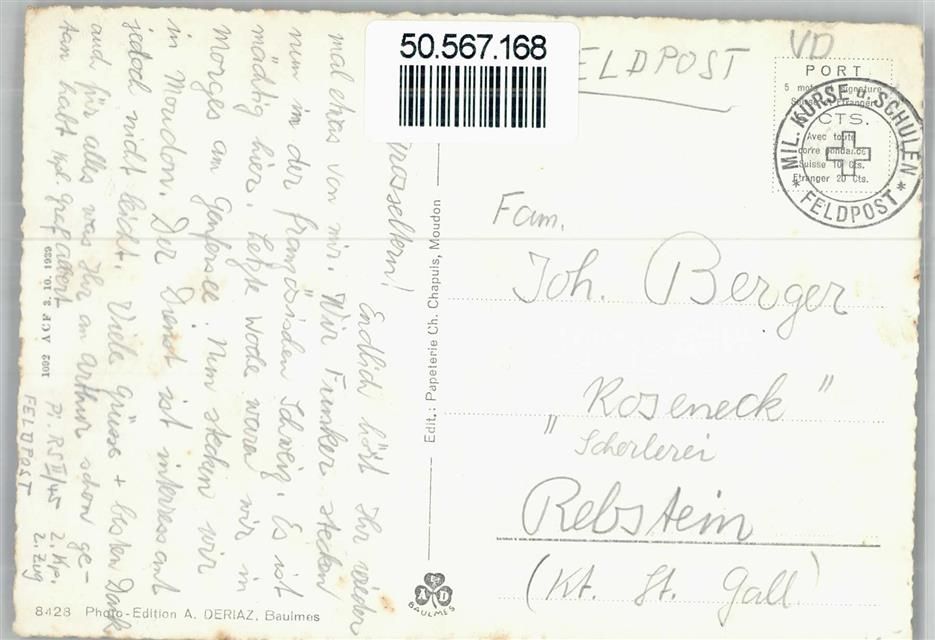 50.567.168
ELDPOST
VD
PORT
5 mots Signature
Suisse et Etranger
CTS.
Avec toute
correspondance
Suisse 10 Cts.
Etranger 20 Cts.
MIL. KURSE u. SCHULEN
* FELDPOST *
Fam.
Joh. Berger
"Roseneck"
Scherlerei
Rebstein
(Kt. St. Gall)
Grosseltern!
Endlich hört Ihr wieder
mal etwas von mir. Wir Funker stecken
nun in der französischen Schweiz. Es ist
mächtig hier. Letzte Woche waren wir in
Morges am Genfersee. Nun stecken wir
in Moudon. Der Dienst ist interessant
jedoch nicht leicht. Viele Grüsse + besten Dank
auch für alles was Ihr an Arthur schon ge-
tan habt Kpl. Graf Albert
Pi. RS II/45 2. Kp.
2. Zug
FELDPOST
1092 ACF 3. 10. 1939
Edit.: Papeterie Ch. Chapuis, Moudon
A D
BAULMES
8428 Photo-Edition A. DERIAZ, Baulmes